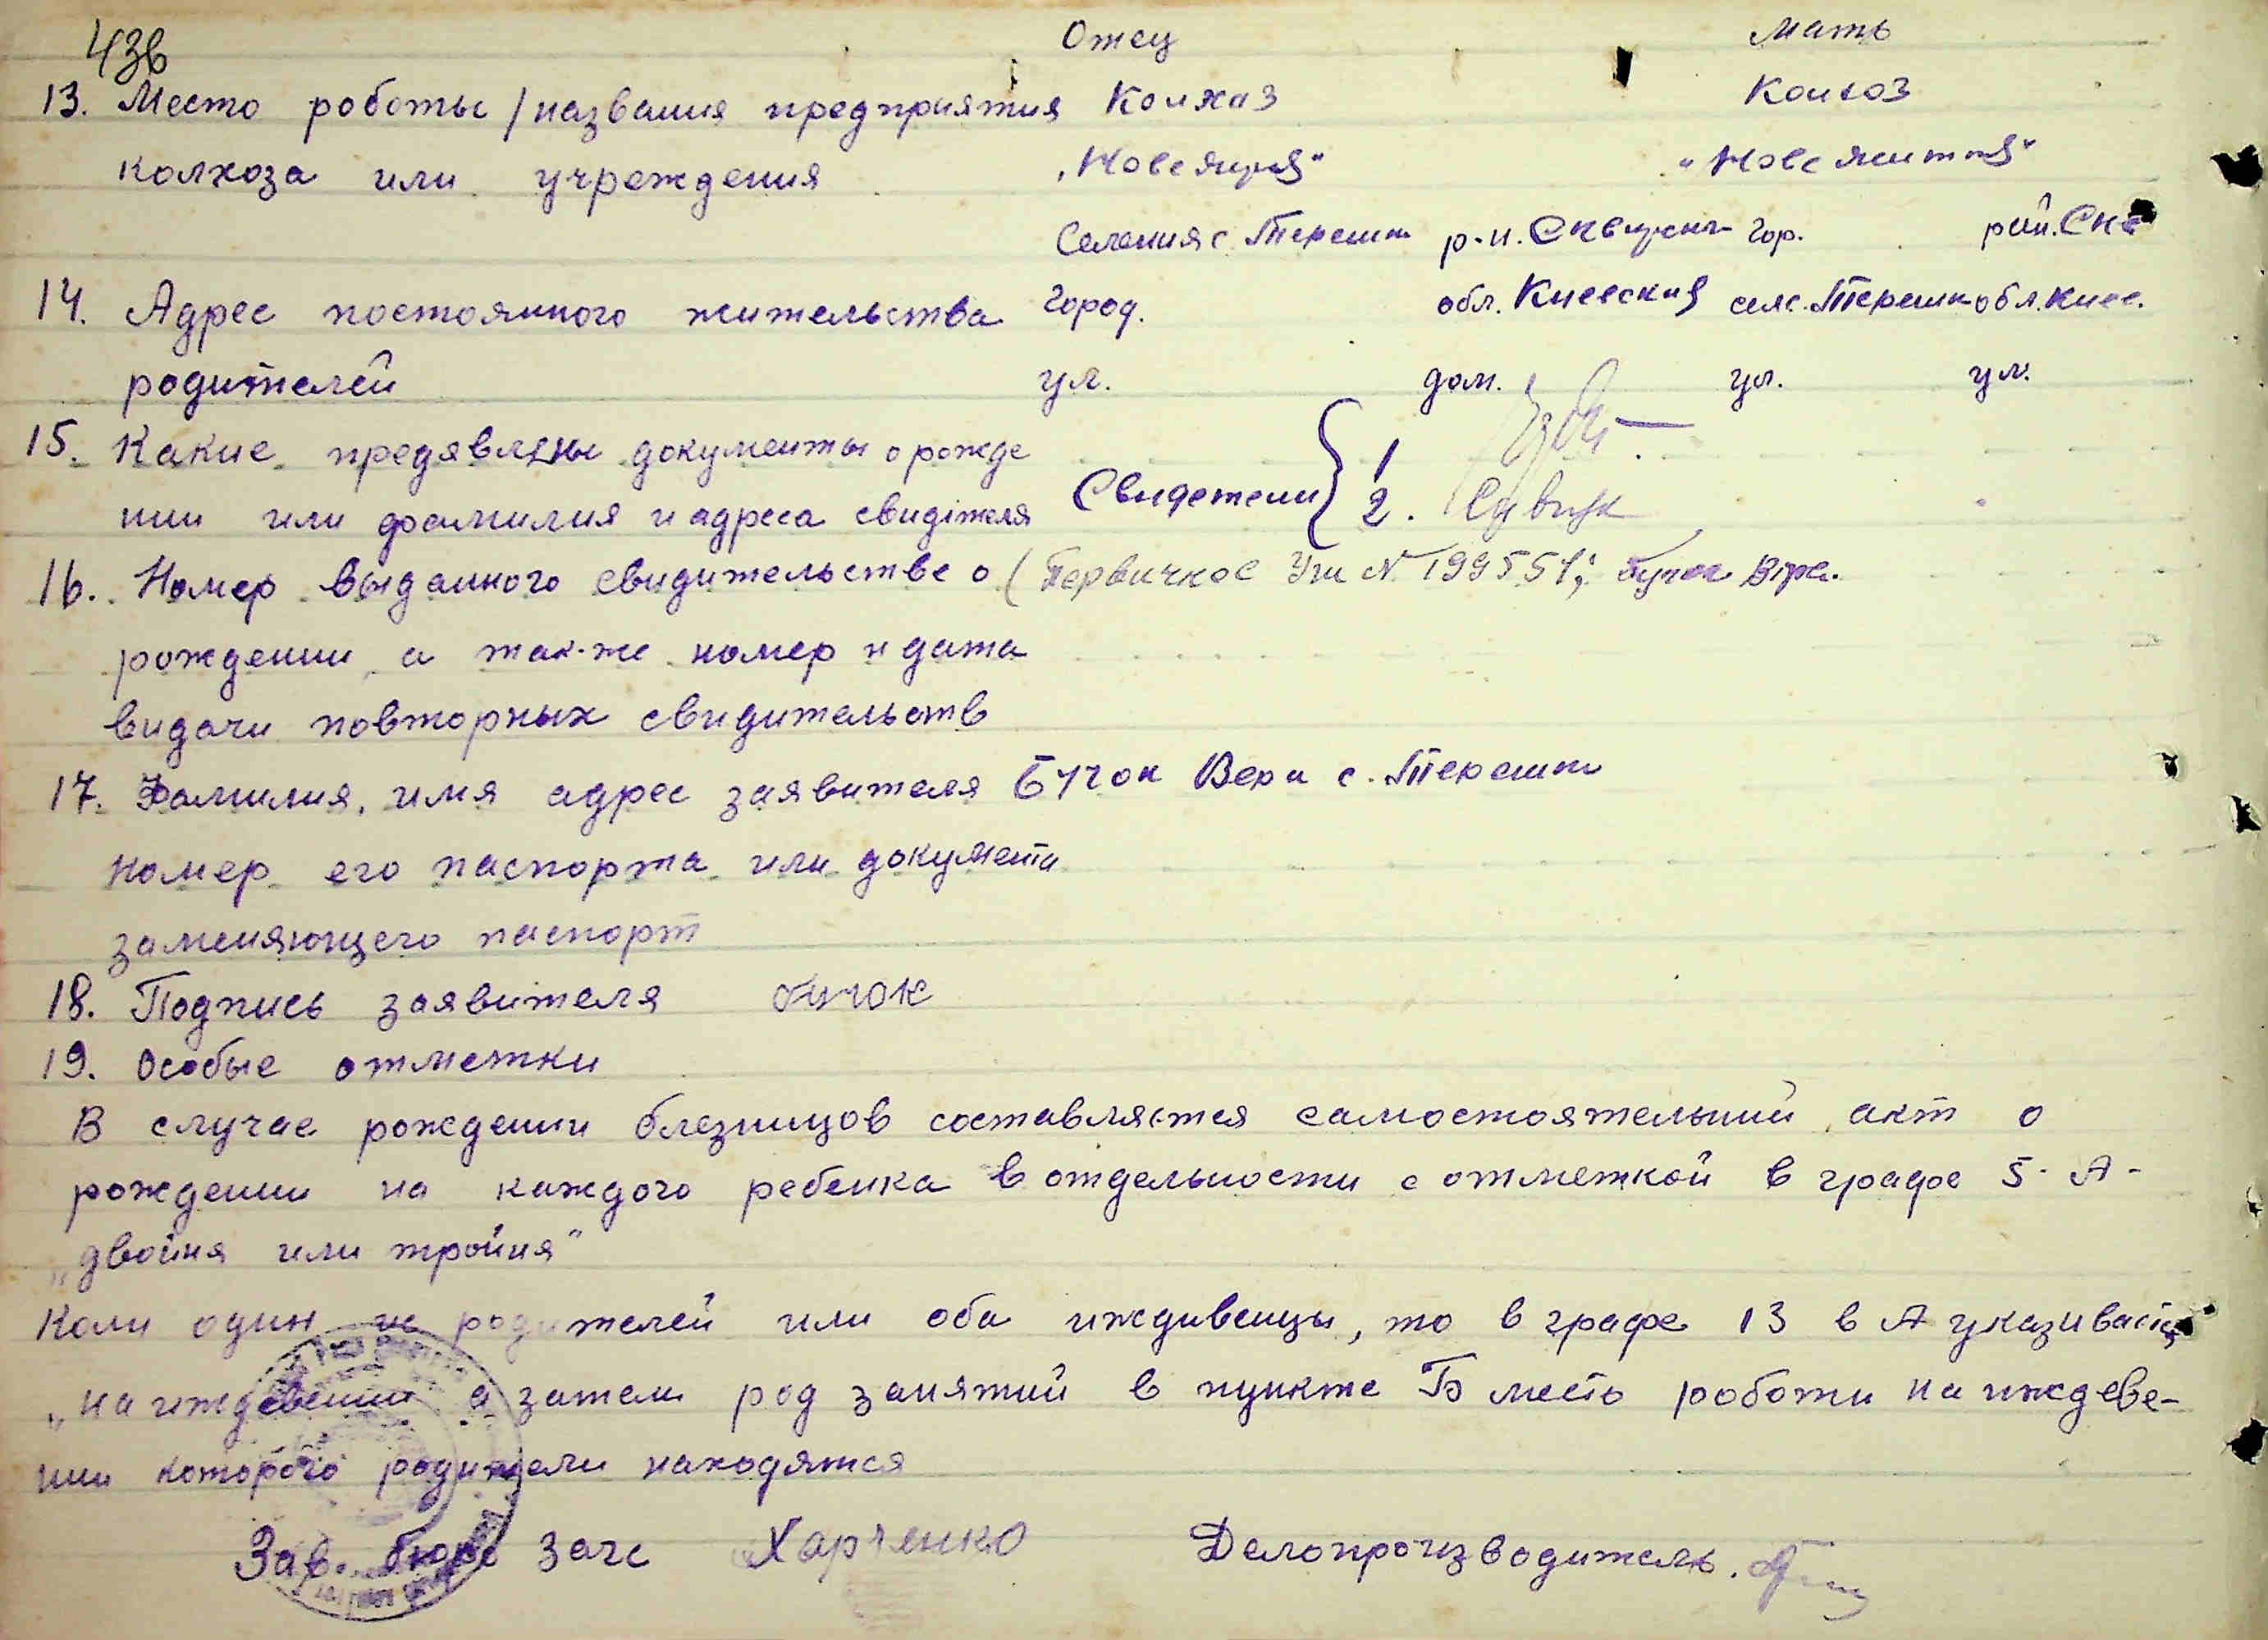 43в
Отец Мать
13. Место роботы / названия предприятия Колхаз Колхоз
колхоза или учреждения „Нове " „Нове життя"
Селения с. Терешк р-н. Сквирск гор. рай. Скв
14. Адрес постоянного жительства город. обл. Киевския сел с. Терешк обл. Киев.
родителей ул. дом. ул. ул.
15. Какие предявлены документы о рожде
нии или фамилия и адреса свидітеля Свидетели { 1
2.
16. Номер выданного свидительстве о ( Первичное Уш № 199551;
рождении а так-же номер и дата
видачи повторных свидительств
17. Фамилия, имя адрес заявителя Бучок Вера с. Терешк
номер его паспорта или документа
заменяющего паспорт
18. Подпись заявителя бучок
19. Особые отметки
В случае рождении близницов составляется самостоятельний акт о
рождении на каждого ребенка в отдельности с отметкой в графе 5-А-
„двойня или тройня"
Коли один из родителей или оба иждивенцы, то в графе 13 в А указивается
„на иждевении а затем род занятий в пункте Б место роботи на иждеве-
нии которого родители находятся
Зав. бюро загс Харченко Делопроизводитель.